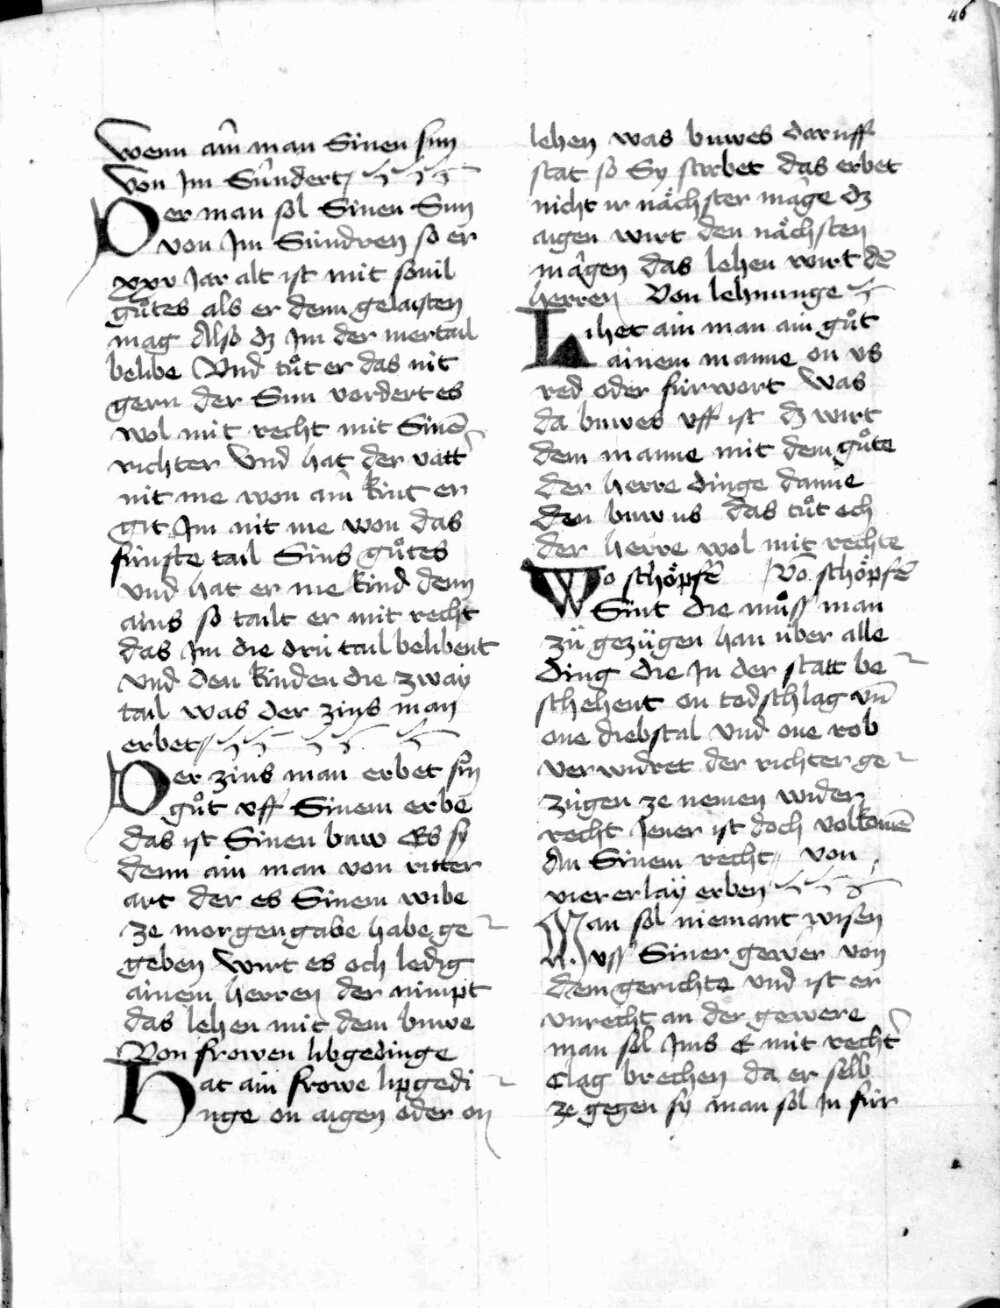 46
Wenn ain man Sinen sun
Von Im Sundert
Der man sol Sinen Sun
von Im Sundren so er
xxv Jar alt ist mit sovil
gůtes als er denn gelaisten
mag Also dz Im der mertail
belibe Und tůt er das nit
gern der Sun vordert es
wol mit recht mit Sinē
richter Und hat der vatt
nit me won ain kint er
git Im nit me won das
fünfte tail Sins gůtes
Und hat er me kind denn
ains so tailt er mit recht
das Im die drü tail belibent
Und den kinden die zway
tail was der zins man
erbet
Der zins man erbet sin
gůt uff Sinem erbe
das ist Sinen buw Es sy
denn ain man von ritter
art der es Sinem wibe
ze morgengabe habe ge
geben wirt es och ledig
ainem herren der nimpt
das lehen mit dem buwe
Von frowen libgedinge
Hat ain frowe lipgedi
nge on aigen oder on
lehen was buwes daruff
stat so Sy stirbet das erbet
nicht ir nächster mage dz
aigen wirt den nächsten
magen das lehen wirt dē
herren Von lehnunge
Lihet ain man ain gůt
ainem manne on us
red oder fürwort was
da buwes uff ist dz wirt
dem manne mit dem gůte
der herre dinge danne
den buw us das tůt och
der herre wol mit rechte
Wo schöpfē Vō schöpfē
Sint die můss man
zü gezügen han über alle
ding die In der statt be
schehent on todschlag un̄
one diebstal und one rob
verwidret der richter ge
zügen ze nemen wider
recht Jener ist doch volkomē
An Sinem recht von
viererlay erben
Man sol niemant wisen
uss Siner gewer von
dem gerichte und ist er
unrecht an der gewere
man sol Ims E mit recht
clag brechen da er selb
ze gegen sy man sol In für